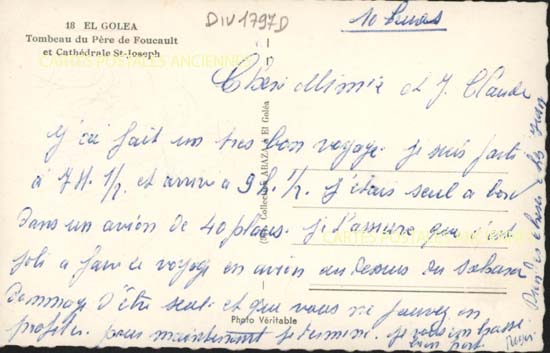 18 EL GOLEA
Tombeau du Père de Foucault
et Cathédrale St-Joseph
CARTES POSTALES ANCIENNES
DIV1797D
10 heures
Cheri Mimie et J. Claude
J'ai fait un tres bon voyage. je suis parti
à 7H.1/2. et arrivé a 9h.1/2. J'étais seul a bord
dans un avion de 40 places. je t'assure que c'est
joli a faire ce voyage en avion au dessus du sahara
Dommage d'être seul et que vous ne pouvez en
profiter. pour maintenant je termine. je vous embrasse
bien fort.
Collection ABAZ El Goléa
CARTES POSTALES ANCIENNES
Photo Véritable